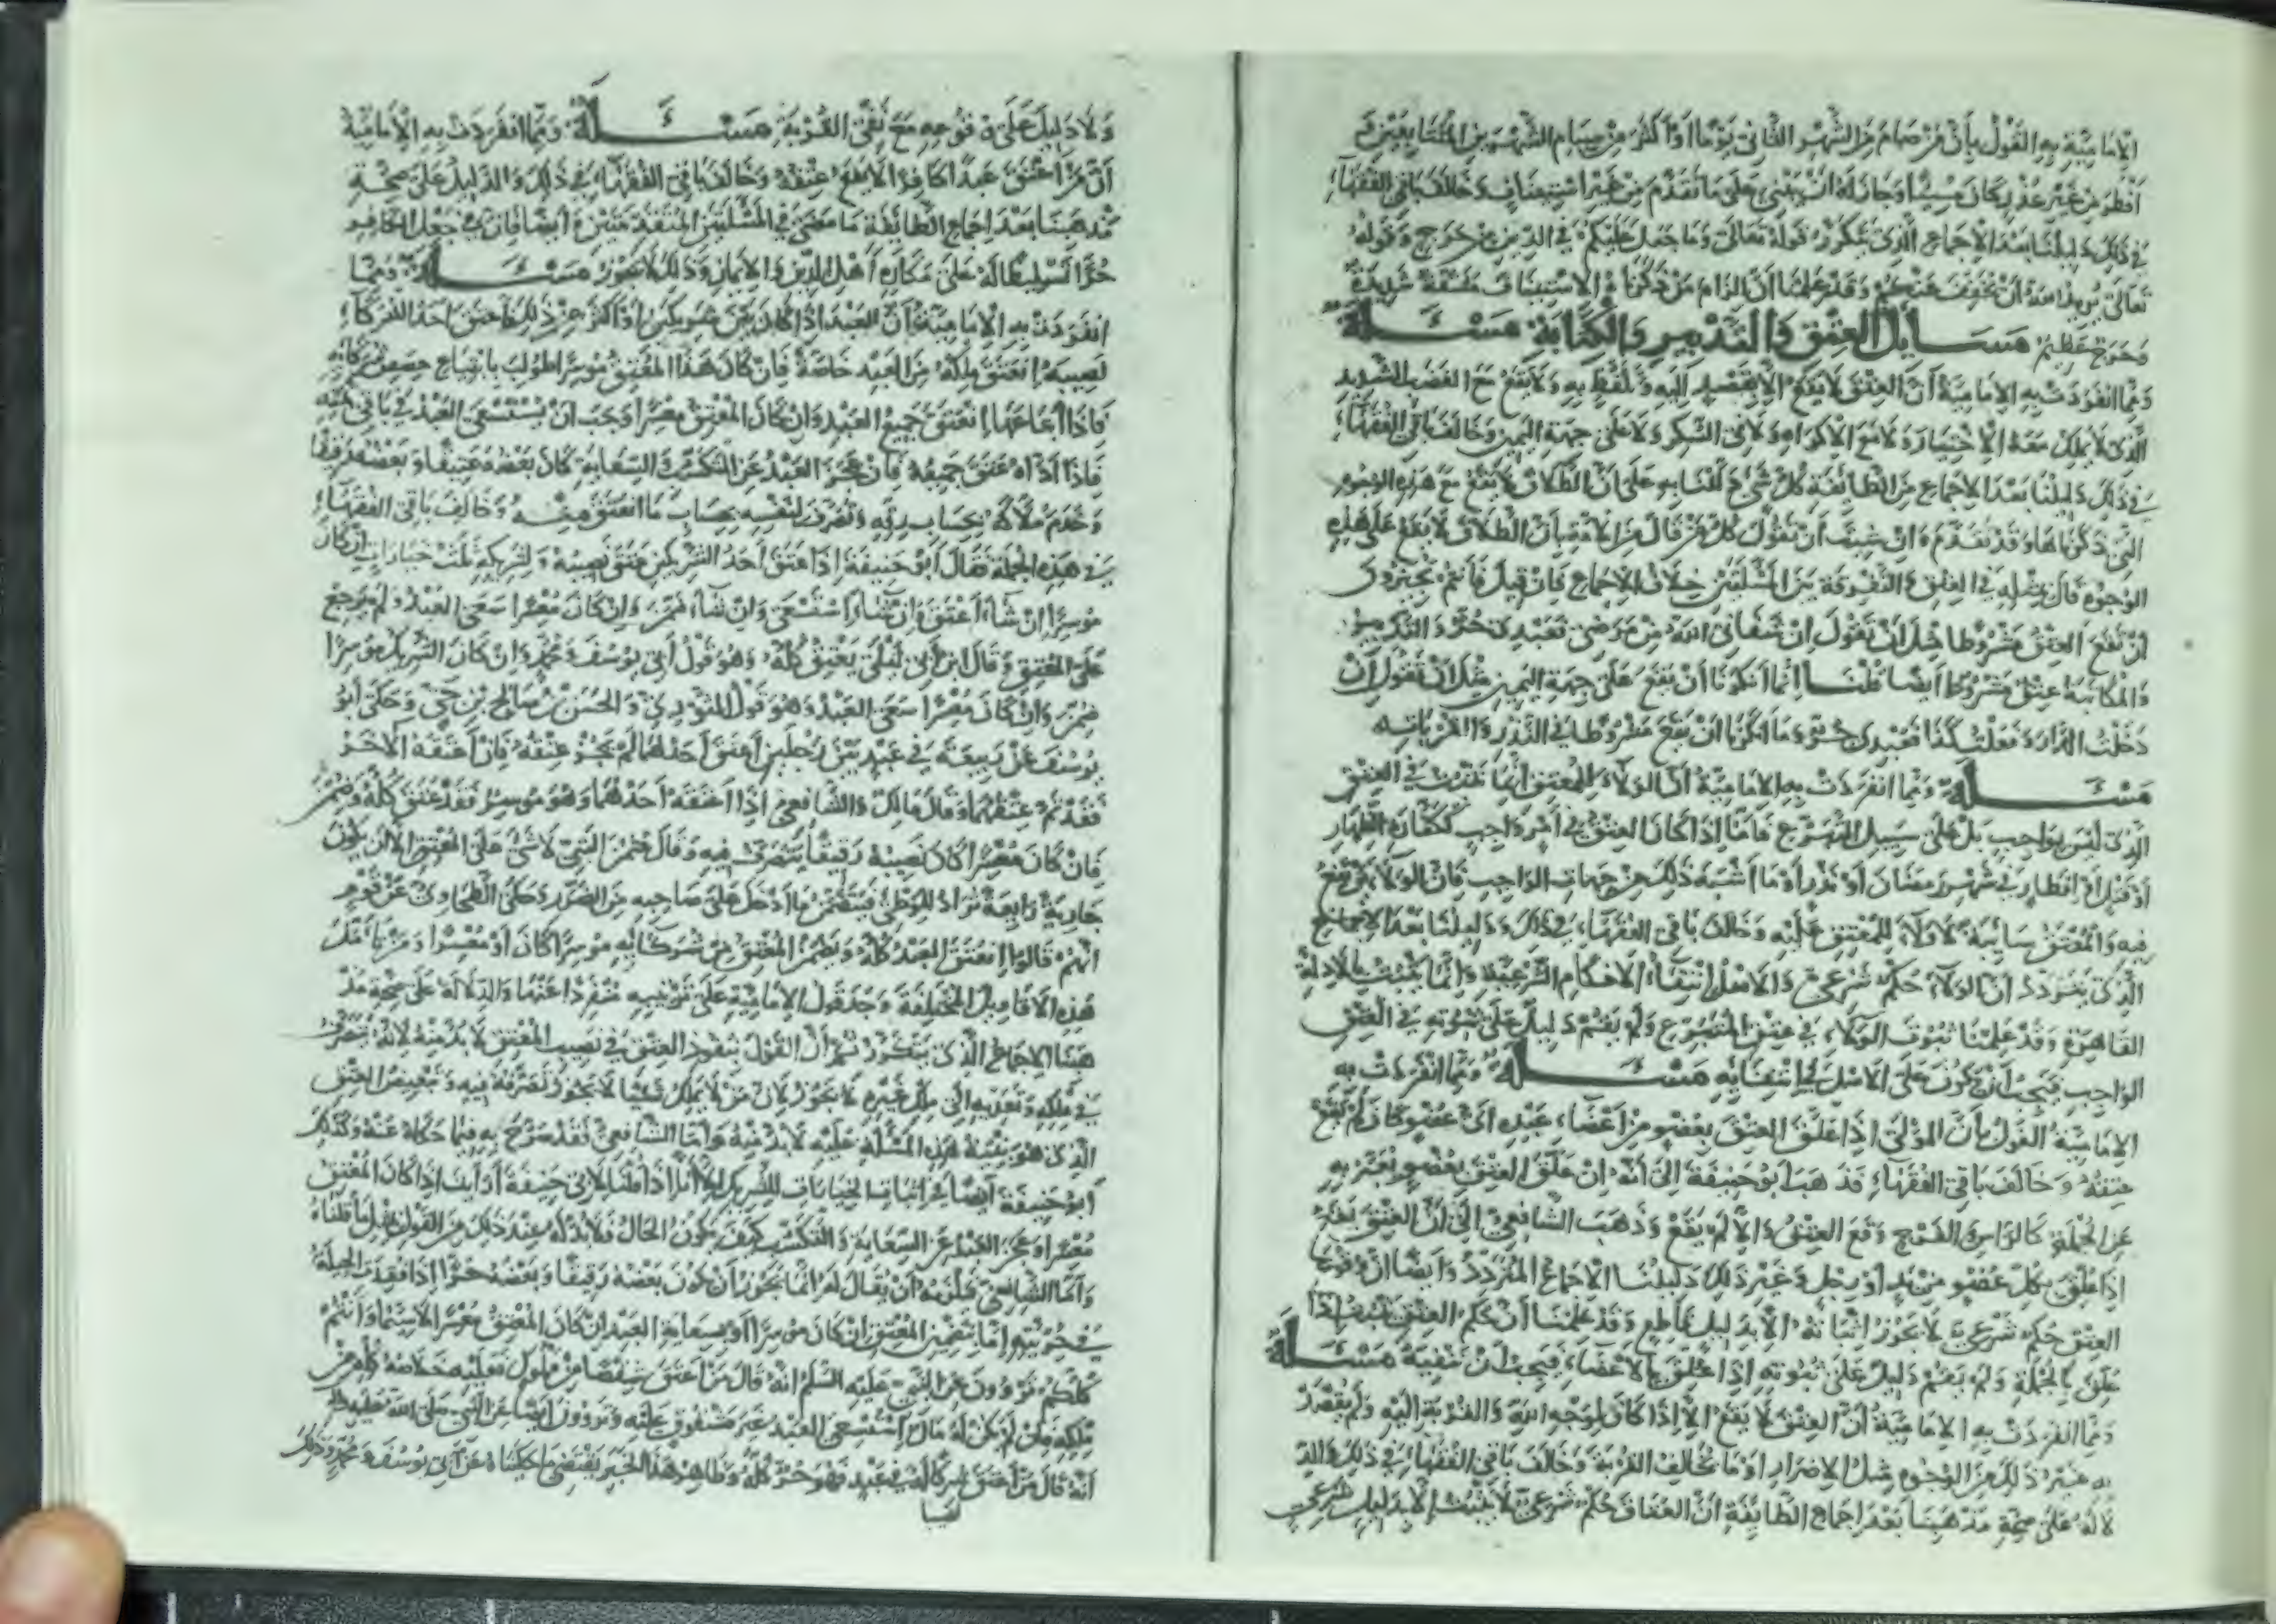 الإمامية به القول بأن من صام من الشهر الثاني يوما أو أكثر من صيام الشهرين المتتابعين ثم
أفطر من غير عذر كان مسيئا وجاز له أن يبني على ما تقدم من غير استيناف وخالف باقي الفقهاء
في ذلك دليلنا بعد الإجماع الذي يتكرر قوله تعالى وما جعل عليكم في الدين من حرج وقوله
تعالى يريد الله أن يخفف عنكم وقد علمنا أن إلزام من ذكرناه الاستيناف مشقة شديدة
وحرج عظيم مسايل العتق والتدبير والكتابة مسئلة
ومما انفردت به الإمامية أن العتق لا يقع إلا بقصد إليه وتلفظ به ولا يقع مع الغضب الشديد
الذي لا يملك معه الاختيار ولا مع الإكراه ولا في السكر ولا على جهة اليمين وخالف باقي الفقهاء
في ذلك دليلنا بعد الإجماع من الطائفة كل شيء دللنا به على أن الطلاق لا يقع مع هذه الوجوه
التي ذكرناها وقد تقدم وإن شئت أن تقول كل من قال من الأمة بأن الطلاق لا يقع على هذه
الوجوه قال بمثله في العتق والتفرقة بين المسئلتين خلاف الإجماع فإن قيل فأنتم تجيزون
أن يقع العتق مشروطا مثل أن يقول إن شفاني الله من مرضي فعبدي حر والتدبير
والمكاتبة عتق مشروط أيضا قلنا إنما أنكرنا أن يقع على جهة اليمين مثل أن تقول إن
دخلت الدار وفعلت كذا فعبدي حر وما أنكرنا أن يقع مشروطا في النذر والقربات
مسئلة ومما انفردت به الإمامية أن الولاء للمعتق إنما يثبت في العتق
الذي ليس بواجب بل على سبيل التبرع فأما إذا كان العتق في أمر واجب ككفارة الظهار
أو قتل أو إفطار في شهر رمضان أو نذر أو ما أشبه ذلك من جهات الواجب فإن الولاء يرتفع
فيه والمعتق سائبة لا ولاء للمعتق عليه وخالف باقي الفقهاء في ذلك ودليلنا بعد الإجماع
الذي يتردد أن الولاء حكم شرعي والأصل انتفاء الأحكام الشرعية وإنما يثبت بالأدلة
القاهرة وقد علمنا ثبوت الولاء في عتق المتبرع ولم يقم دليل على ثبوته في العتق
الواجب فيجب أن يكون على الأصل في انتفائه مسئلة ومما انفردت به
الإمامية القول بأن المولى إذا علق العتق بعضو من أعضاء عبده أي عضو كان لم يقع
عتقه وخالف باقي الفقهاء فذهب أبو حنيفة إلى أنه إن علق العتق بعضو يعبر به
عن الجملة كالرأس والفرج وقع العتق وإلا لم يقع وذهب الشافعي إلى أن العتق يقع
إذا علق بكل عضو من يد أو رجل وغير ذلك دليلنا الإجماع المتردد وأيضا أن وقوع
العتق حكم شرعي لا يجوز إثباته إلا بدليل قاطع وقد علمنا أن حكم العتق يثبت إذا
علق بالجملة ولم يقم دليل على ثبوته إذا علق بالأعضاء فيجب أن ننفيه مسئلة
ومما انفردت به الإمامية أن العتق لا يقع إلا إذا كان لوجه الله والقربة إليه ولم يقصد
به غير ذلك من الوجوه مثل الإضرار أو ما يخالف القربة وخالف باقي الفقهاء في ذلك والد
لالة على صحة مذهبنا بعد إجماع الطائفة أن العتاق حكم شرعي لا يثبت إلا بدليل شرعي
ولا دليل على وقوعه مع نفي القربة مسئلة ومما انفردت به الإمامية
أن من أعتق عبدا كافرا لا يقع عتقه وخالف باقي الفقهاء في ذلك والدليل على صحة
مذهبنا بعد إجماع الطائفة ما مضى في المسئلتين المتقدمتين وأيضا فإن في جعل الكافر
حرا تسليطا له على مكاره أهل الدين والإيمان وذلك لا يجوز مسئلة ومما
انفردت به الإمامية أن العبد إذا كان بين شريكين أو أكثر من ذلك فأعتق أحد الشركاء
نصيبه انعتق ملكه من العبد خاصة فإن كان هذا المعتق موسرا طولب بابتياع حصص شركائه
فإذا ابتاعها انعتق جميع العبد وإن كان المعتق معسرا وجب أن يستسعى العبد في باقي ثمنه
فإذا أداه عتق جميعه فإن عجز العبد عن التكسب والسعاية كان بعضه عتيقا وبعضه رقيقا
وخدم ملاكه بحساب رقه وتصرف لنفسه بحساب ما انعتق منه وخالف باقي الفقهاء
في هذه الجملة فقال أبو حنيفة إذا عتق أحد الشريكين عتق نصيبه ولشريكه ثلث خيارات إن كان
موسرا إن شاء أعتق وإن شاء استسعى وإن شاء ضمن وإن كان معسرا سعى العبد ولم يرجع
على المعتق وقال ابن أبي ليلى يعتق كله وهو قول أبي يوسف ومحمد وإن كان الشريك موسرا
ضمن وإن كان معسرا سعى العبد وهو قول الثوري والحسن بن صالح بن حي وحكى أبو
يوسف عن ربيعة في عبد بين رجلين أعتق أحدهما لم يجز عتقه فإن أعتقه الآخر
فقد تم عتقهما وقال مالك والشافعي إذا أعتقه أحدهما وهو موسر فقد عتق كله وضمن
فإن كان معسرا كان نصيبه رقيقا يتصرف فيه وقال عثمان البتي لا شيء على المعتق إلا أن يكون
جارية رابعة تراد للوطئ فيضمن ما أدخل على صاحبه من الضرر وحكى الطحاوي عن قوم
أنهم قالوا انعتق العبد كله ويضمن المعتق من شركائه موسرا كان أو معسرا ومن تأمل
هذه الأقاويل المختلفة وجد قول الإمامية على ترتيبه منفردا عنها والدلالة على صحة مذ
هبنا الإجماع الذي يتكرر ثم أن القول بنفوذ العتق في نصيب المعتق لا بد منه لأنه تصرف
في ملكه وتعديه إلى ملك غيره لا يجوز لأن من لا يملك شيئا لا يجوز تصرفه فيه وتبعيض العتق
الذي هو بقية هذه المسئلة عليه لا بد منه وأما الشافعي فقد صرح به فيما حكاه عنه وكذلك
أبو حنيفة أيضا في إثبات الخيارات للشريك إذا قلنا لأبي حنيفة أرأيت إذا كان المعتق
معسرا وعجز العبد عن السعاية والتكسب كيف يكون الحال فلا بد له عند ذلك من القول بمثل ما قلناه
وأما الشافعي فلزمه أن يقال له إنما يجوز أن يكون بعضه رقيقا وبعضه حرا إذا فقدت الحيلة
في حريته إما بتضمين المعتق إن كان موسرا أو بسعاية العبد إن كان المعتق معسرا لا سيما وأنتم
كلكم تروون عن النبي عليه السلم أنه قال من أعتق شقصا من مملوك فعليه خلاصه كله من
ملكه فإن لم يكن له مال استسعى العبد غير مشقوق عليه وتروون أيضا عن النبي صلى الله عليه
أنه قال من أعتق شركا له في عبد فهو حر كله وظاهر هذا الخبر يقتضي ما حكيناه عن أبي يوسف ومحمد وذلك